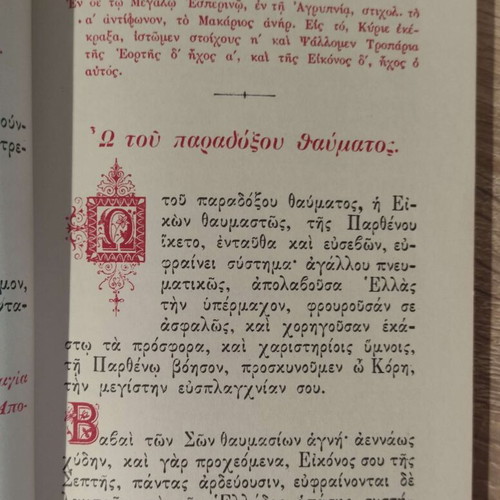 Ἐν δὲ τῷ Μεγάλῳ Ἑσπερινῷ, ἐν τῇ Ἀγρυπνίᾳ, στιχολ. τὸ
α' ἀντίφωνον, τὸ Μακάριος ἀνήρ. Εἰς τό, Κύριε ἐκέ-
κραξα, ἱστῶμεν στοίχους η' καὶ Ψάλλομεν Τροπάρια
τῆς Ἑορτῆς δ' ἦχος α', καὶ τῆς Εἰκόνος δ', ἦχος ὁ
αὐτός.
Ὢ τοῦ παραδόξου θαύματος.
Ὢ τοῦ παραδόξου θαύματος, ἡ Εἰ-
κὼν θαυμαστῶς, τῆς Παρθένου
ἵκετο, ἐνταῦθα καὶ εὐσεβῶν, εὐ-
φραίνει σύστημα· ἀγάλλου πνευ-
ματικῶς, ἀπολαβοῦσα Ἑλλὰς
τὴν ὑπέρμαχον, φρουροῦσάν σε
ἀσφαλῶς, καὶ χορηγοῦσαν ἑκά-
στῳ τὰ πρόσφορα, καὶ χαριστηρίοις ὕμνοις,
τῇ Παρθένῳ βόησον, προσκυνοῦμεν ὦ Κόρη,
τὴν μεγίστην εὐσπλαγχνίαν σου.
Βαβαὶ τῶν Σῶν θαυμασίων ἁγνή· ἀεννάως
χύδην, καὶ γὰρ προχεόμενα, Εἰκόνος σου τῆς
Σεπτῆς, πάντας ἀρδέουσιν, εὐφραίνονται δὲ